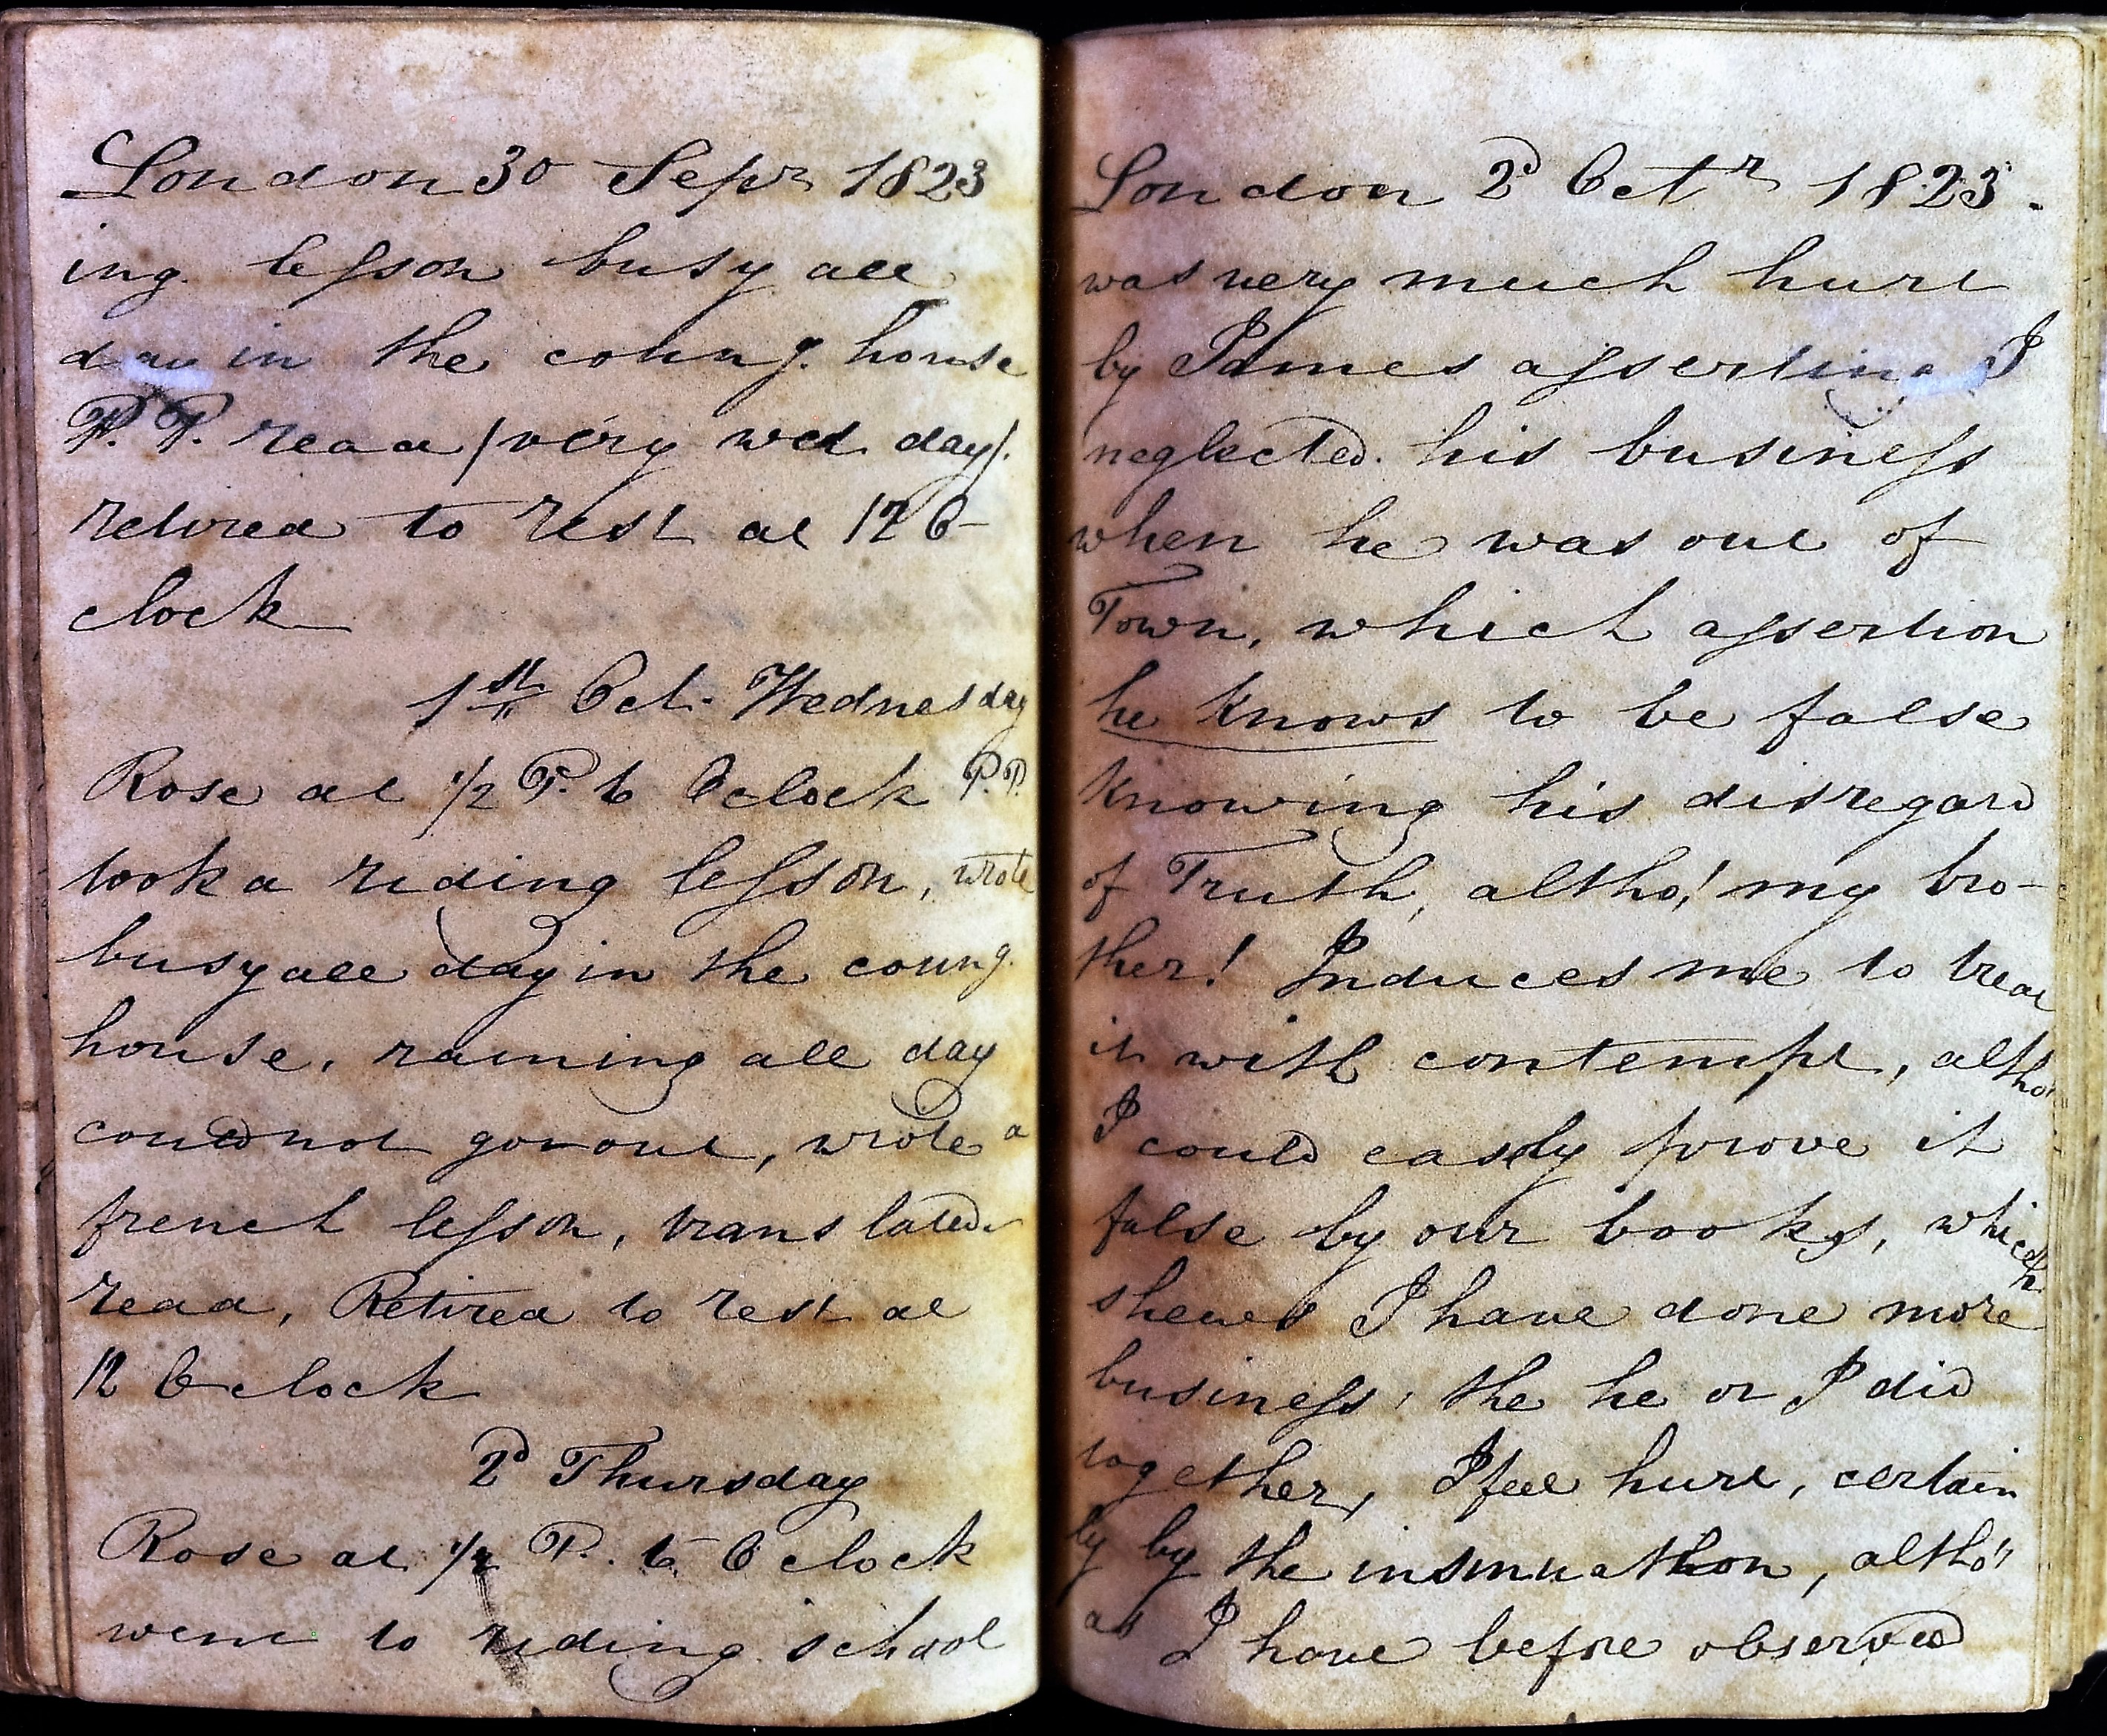 London 30 Sepr 1823
ing. lesson busy all
day in the coung. house
P. P. read (very wet day).
retired to rest at 12 O-
clock
1st Oct. Wednesday
Rose at 1/2 P. 6 Oclock P.P.
took a riding lesson, wrote
busy all day in the coung.
house, raining all day
could not go out, wrote a
french lesson, translated
read, Retired to rest at
12 Oclock
2d Thursday
Rose at 1/2 P. 6 Oclock
went to riding school
London 2d Octr 1823.
was very much hurt
by James asserting I
neglected his business
when he was out of
Town, which assertion
he knows to be false
Knowing his disregard
of Truth, altho! my bro-
ther! Induces me to treat
it with contempt, altho'
I could easily prove it
false by our books, which
shews I have done more
business, the he or I did
together, I feel hurt, certain
ly by the insinuation, altho"
as I have before observed